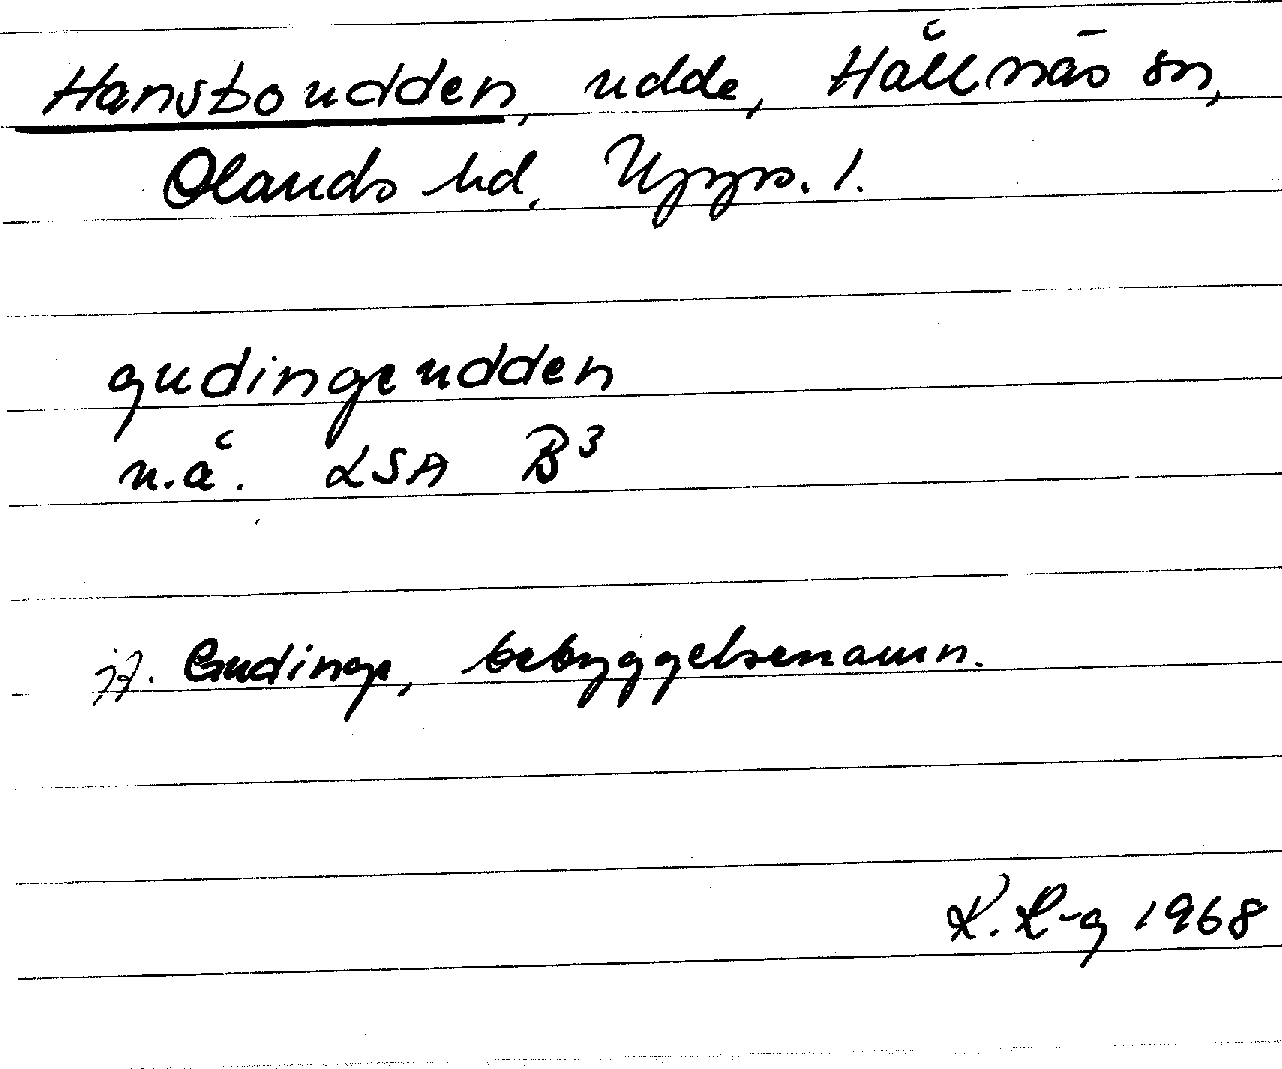 Hansboudden, udde, Hållnäs sn,
Olands hd, Upps. l.
gudingeudden
n.å. LSA B3
jf. Gudinge, bebyggelsenamn.
K. L-g 1968